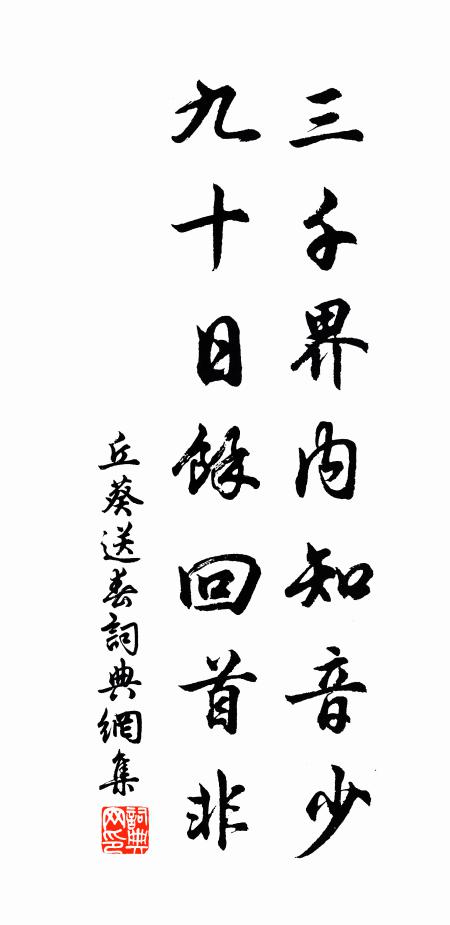 三千界内知音少
九十日餘回首非
丘葵送春詞典網集
詞典网印